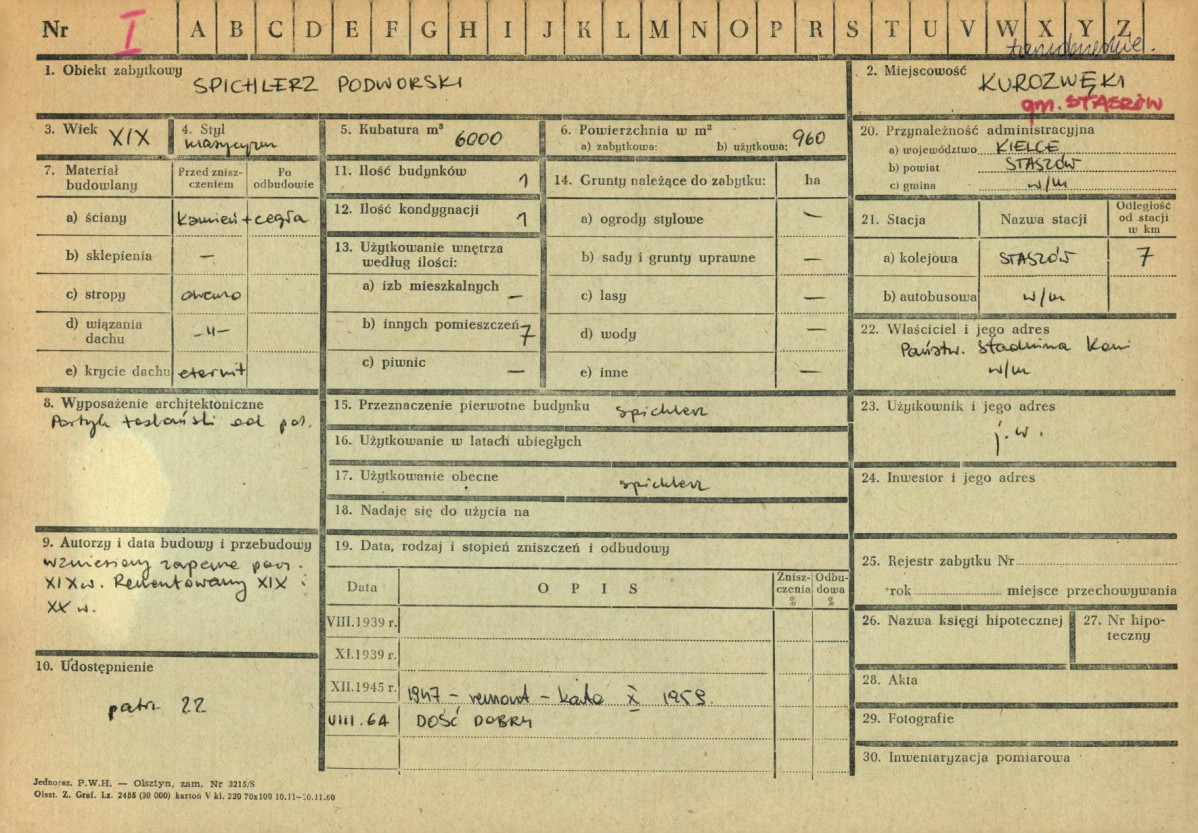 Nr I A B C D E F G H I J K L M N O P R S T U V W X Y Z
tarnobrzeskie.
1. Obiekt zabytkowy
SPICHLERZ PODWORSKI
2. Miejscowość
KUROZWĘKI
gm. STASZÓW
3. Wiek XIX
4. Styl
klasycyzm
5. Kubatura m³ 6000
6. Powierzchnia w m²
a) zabytkowa: b) użytkowa: 960
20. Przynależność administracyjna
a) województwo KIELCE
b) powiat STASZÓW
c) gmina w/m
7. Materiał budowlany
Przed zniszczeniem
Po odbudowie
a) ściany kamień + cegła
b) sklepienia —
c) stropy drewno
d) wiązania dachu -"-
e) krycie dachu eternit
11. Ilość budynków 1
12. Ilość kondygnacji 1
13. Użytkowanie wnętrza
według ilości:
a) izb mieszkalnych —
b) innych pomieszczeń 7
c) piwnic —
14. Grunty należące do zabytku: ha
a) ogrody stylowe —
b) sady i grunty uprawne —
c) lasy —
d) wody —
e) inne —
21. Stacja Nazwa stacji Odległość od stacji w km
a) kolejowa STASZÓW 7
b) autobusowa w/m
22. Właściciel i jego adres
Państw. Stadnina Koni
w/m
8. Wyposażenie architektoniczne
Portyk toskański od pół.
15. Przeznaczenie pierwotne budynku spichlerz
16. Użytkowanie w latach ubiegłych
17. Użytkowanie obecne spichlerz
18. Nadaje się do użycia na
23. Użytkownik i jego adres
j. w.
24. Inwestor i jego adres
9. Autorzy i data budowy i przebudowy
wzniesiony zapewne pocz.
XIX w. Remontowany XIX i
XX w.
10. Udostępnienie
patrz 22
19. Data, rodzaj i stopień zniszczeń i odbudowy
Data OPIS Zniszczenia % Odbudowa %
VIII.1939 r.
XI.1939 r.
XII.1945 r. 1947 – remont – X 1959.
VIII.64 DOŚĆ DOBRY
25. Rejestr zabytku Nr
rok miejsce przechowywania
26. Nazwa księgi hipotecznej
27. Nr hipoteczny
28. Akta
29. Fotografie
30. Inwentaryzacja pomiarowa
Jednoraz. P.W.H. — Olsztyn, zam. Nr 3215/S
Olszt. Z. Graf. Lz. 2485 (30 000) karton V kl. 220 70x100 10.11—30.11.60